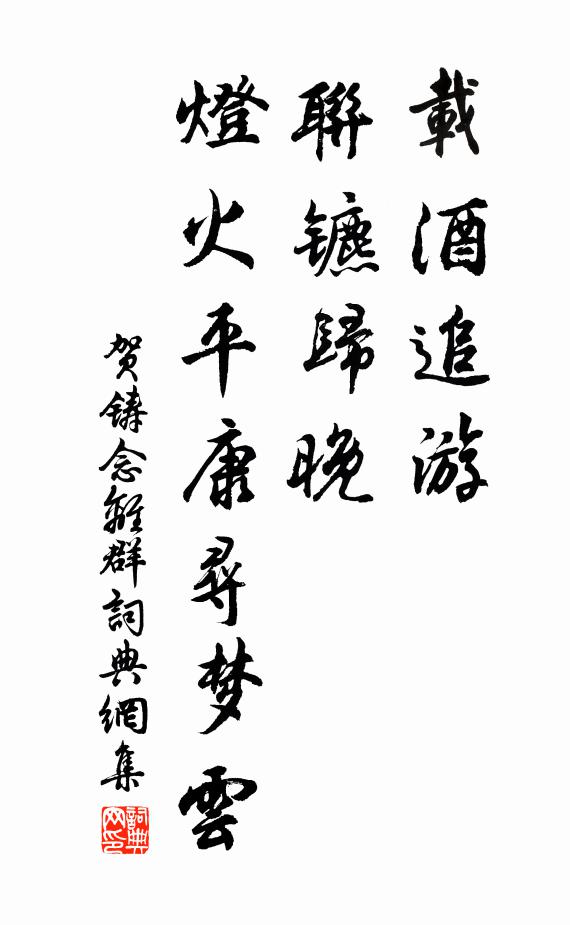 載酒追游
聯镳歸晚
燈火平康尋梦雲
贺鑄念離群詞典網集
詞典网印